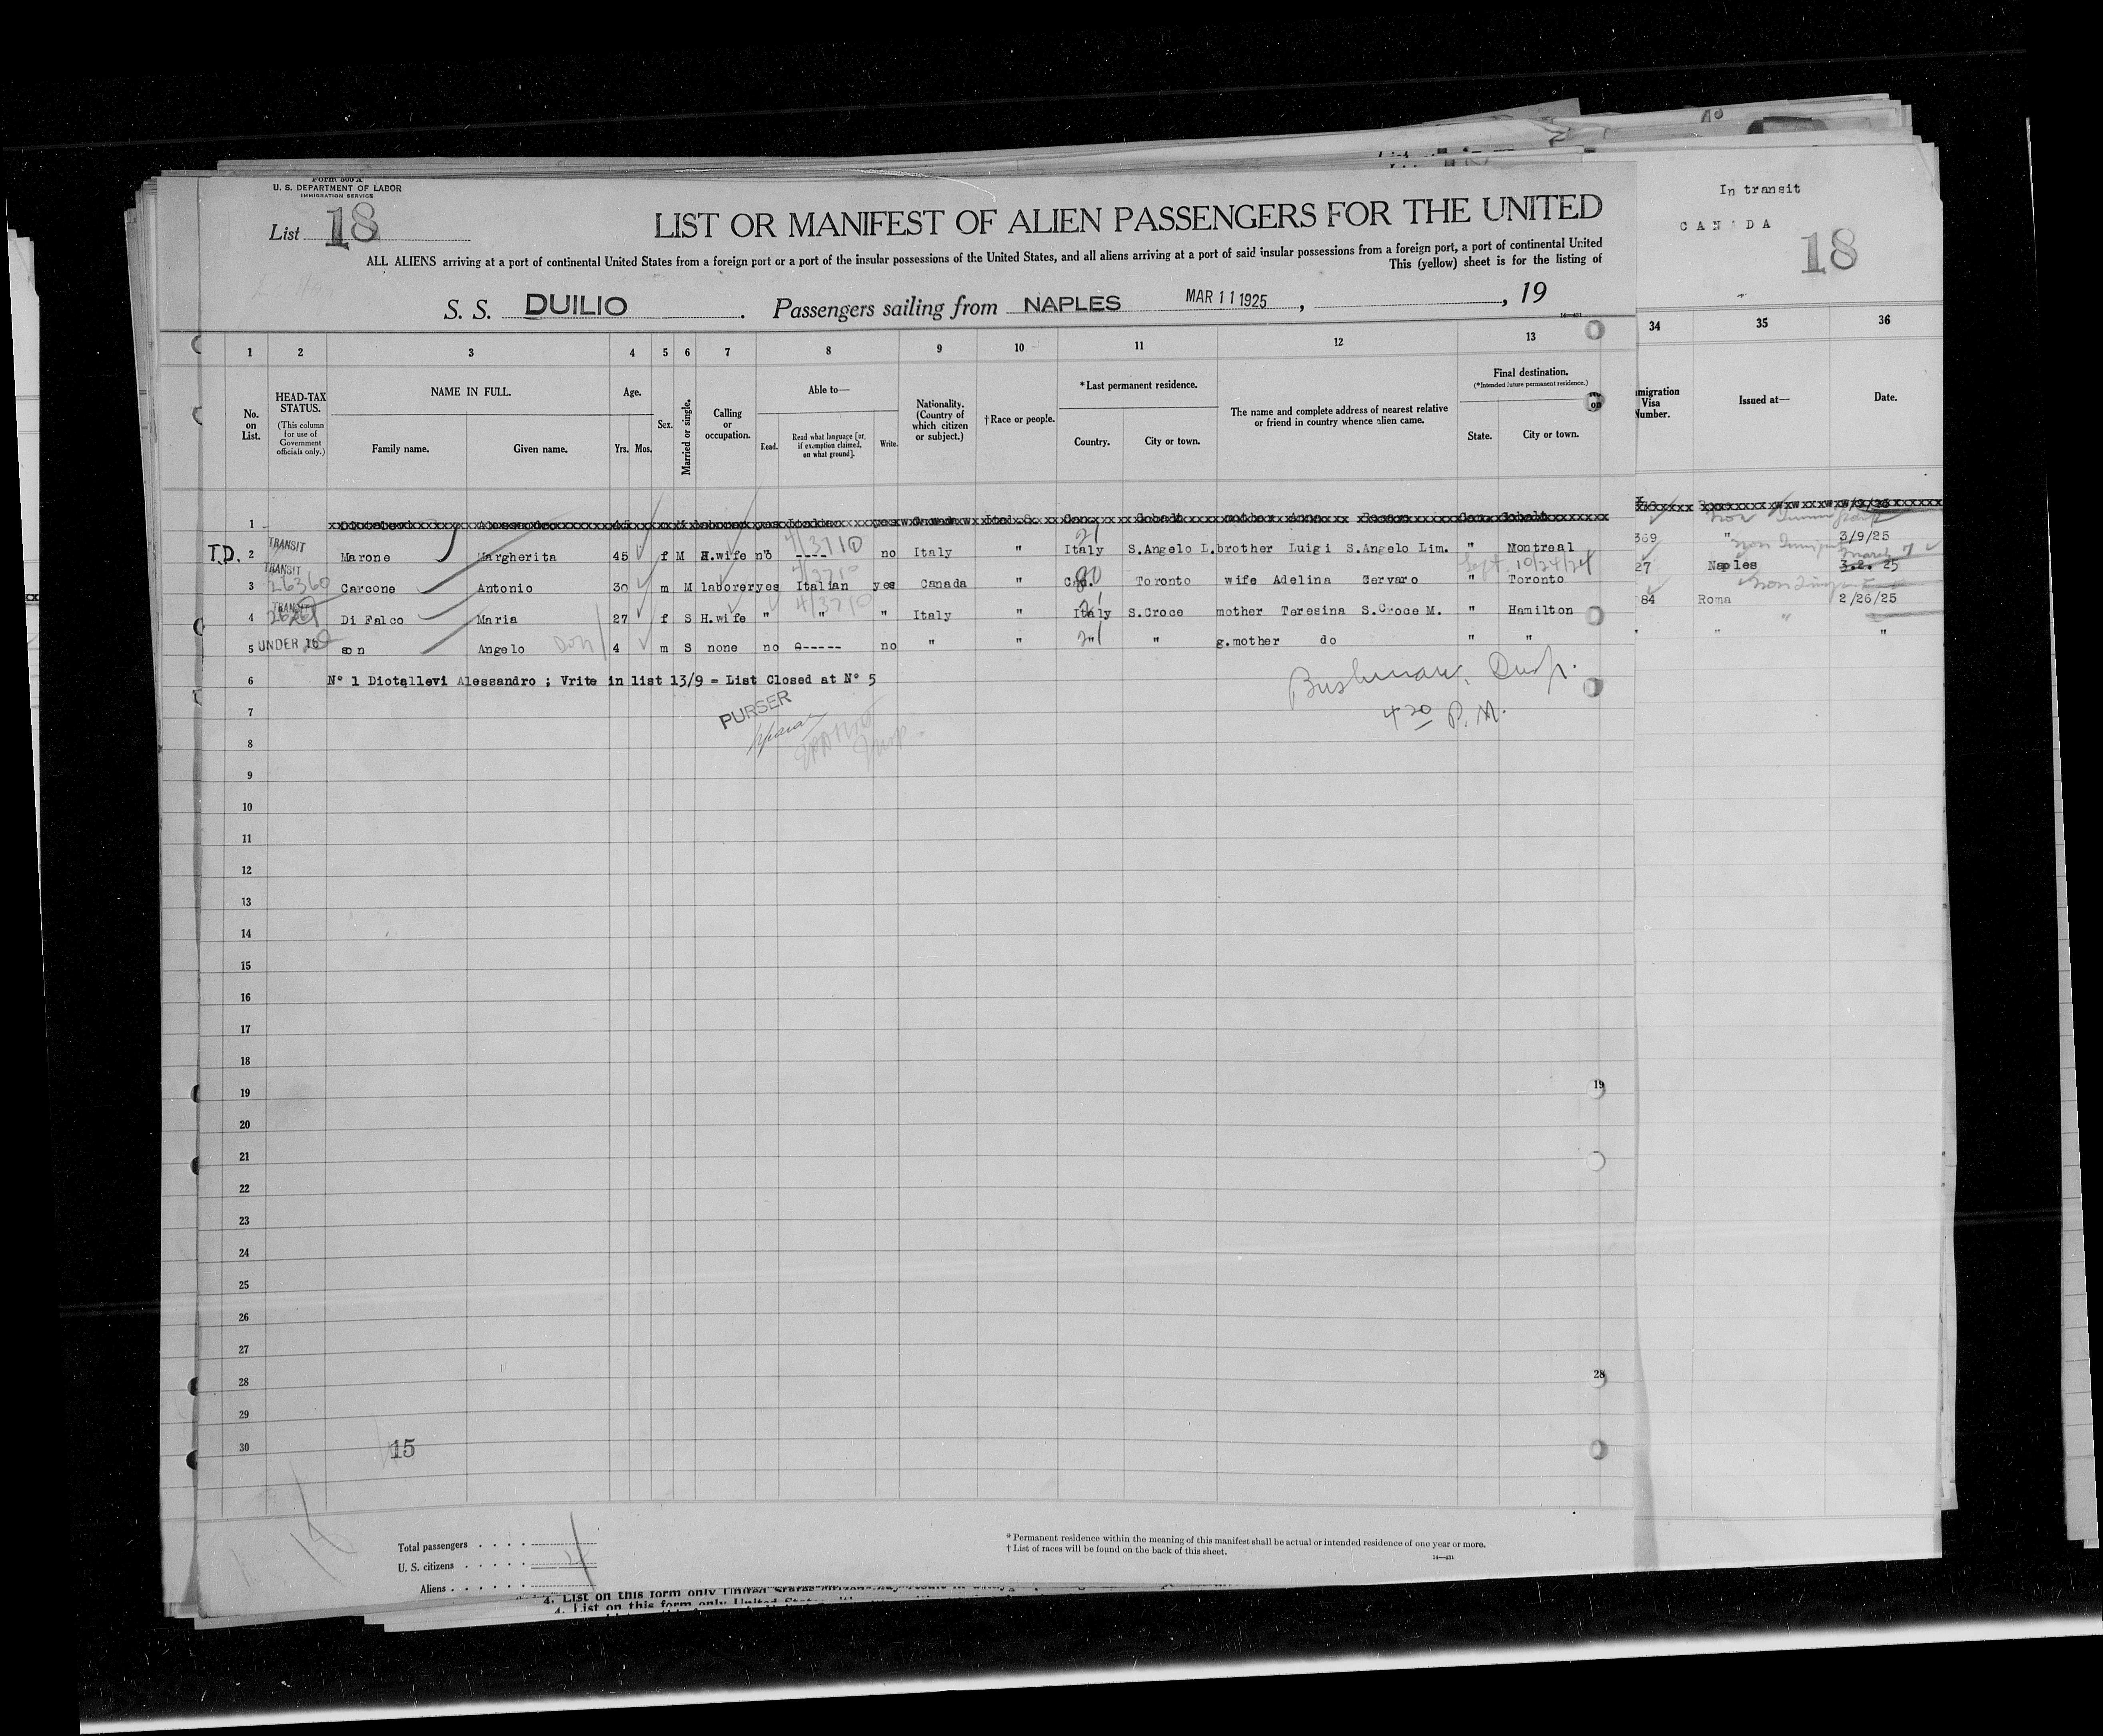 Form 500 A
U. S. DEPARTMENT OF LABOR
IMMIGRATION SERVICE
List 18
LIST OR MANIFEST OF ALIEN PASSENGERS FOR THE UNITED
ALL ALIENS arriving at a port of continental United States from a foreign port or a port of the insular possessions of the United States, and all aliens arriving at a port of said insular possessions from a foreign port, a port of continental United
This (yellow) sheet is for the listing of
S. S. DUILIO . Passengers sailing from NAPLES MAR 11 1925 , , 19
In transit
CAN DA
18
14—431
1 2 3 4 5 6 7 8 9 10 11 12 13 34 35 36
No. on List.
HEAD-TAX STATUS.
(This column for use of Government officials only.)
NAME IN FULL.
Family name. Given name.
Age.
Yrs. Mos.
Sex.
Married or single.
Calling or occupation.
Able to—
Read. Read what language [or, if exemption claimed, on what ground]. Write.
Nationality. (Country of which citizen or subject.)
†Race or people.
*Last permanent residence.
Country. City or town.
The name and complete address of nearest relative or friend in country whence alien came.
Final destination.
(*Intended future permanent residence.)
State. City or town.
migration Visa Number.
Issued at—
Date.
1
T.D. 2 TRANSIT Marone Margherita 45 f M H.wife no ---- no Italy " Italy S.Angelo L. brother Luigi S.Angelo Lim. " Montreal 369 " 3/9/25
4/3710 21
3 TRANSIT 26360 Carcone Antonio 30 m M laborer yes Italian yes Canada " Can. Toronto wife Adelina Cervaro " Toronto 27 Naples 3.2. 25
Sept. 10/24/24
4 TRANSIT Di Falco Maria 27 f S H.wife " " " Italy " Italy S.Croce mother Teresina S.Croce M. " Hamilton 84 Roma 2/26/25
4/3710
5 UNDER 16 son Angelo 4 m S none no ----- no " " " " g.mother do " " " " "
6 N° 1 Diotallevi Alessandro ; Vrite in list 13/9 = List Closed at N° 5
PURSER
4 20 P.M.
7
8
9
10
11
12
13
14
15
16
17
18
19 19
20
21
22
23
24
25
26
27
28 28
29
30
15
Total passengers . . . .
U. S. citizens . . . . .
Aliens . . . . . .
* Permanent residence within the meaning of this manifest shall be actual or intended residence of one year or more.
† List of races will be found on the back of this sheet.
14—431
4. List on this form only United States
4. List on this form only United